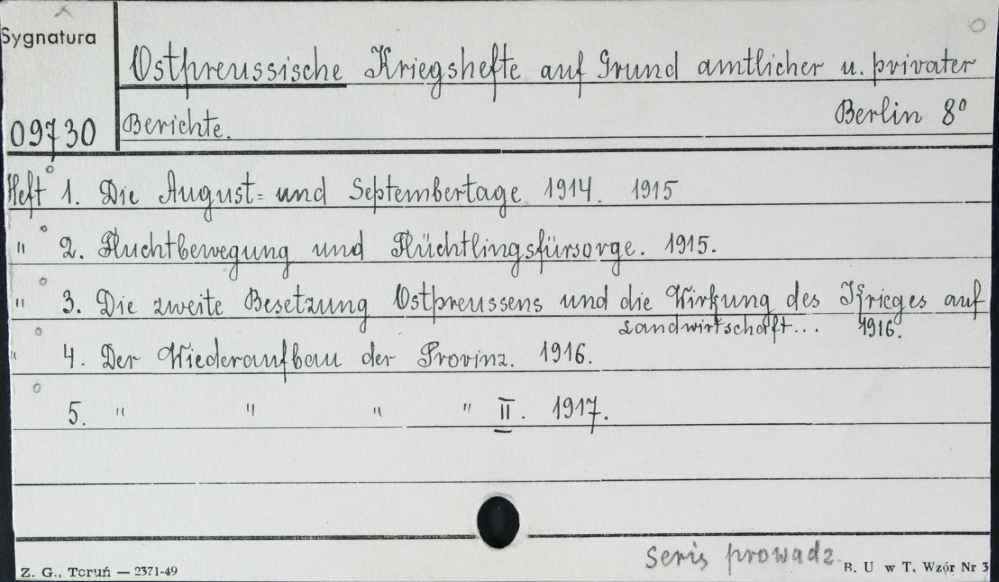 Sygnatura
Ostpreussische Kriegshefte auf Grund amtlicher u. privater
09730 Berichte. Berlin 8°
Heft 1. Die August= und Septembertage 1914. 1915
" 2. Fluchtbewegung und Flüchtlingsfürsorge. 1915.
" 3. Die zweite Besetzung Ostpreussens und die Wirkung des Krieges auf
Landwirtschaft... 1916.
" 4. Der Wiederaufbau der Provinz. 1916.
5. " " " " II. 1917.
Serię prowadz.
Z. G., Toruń — 2371-49 B. U w T. Wzór Nr 3